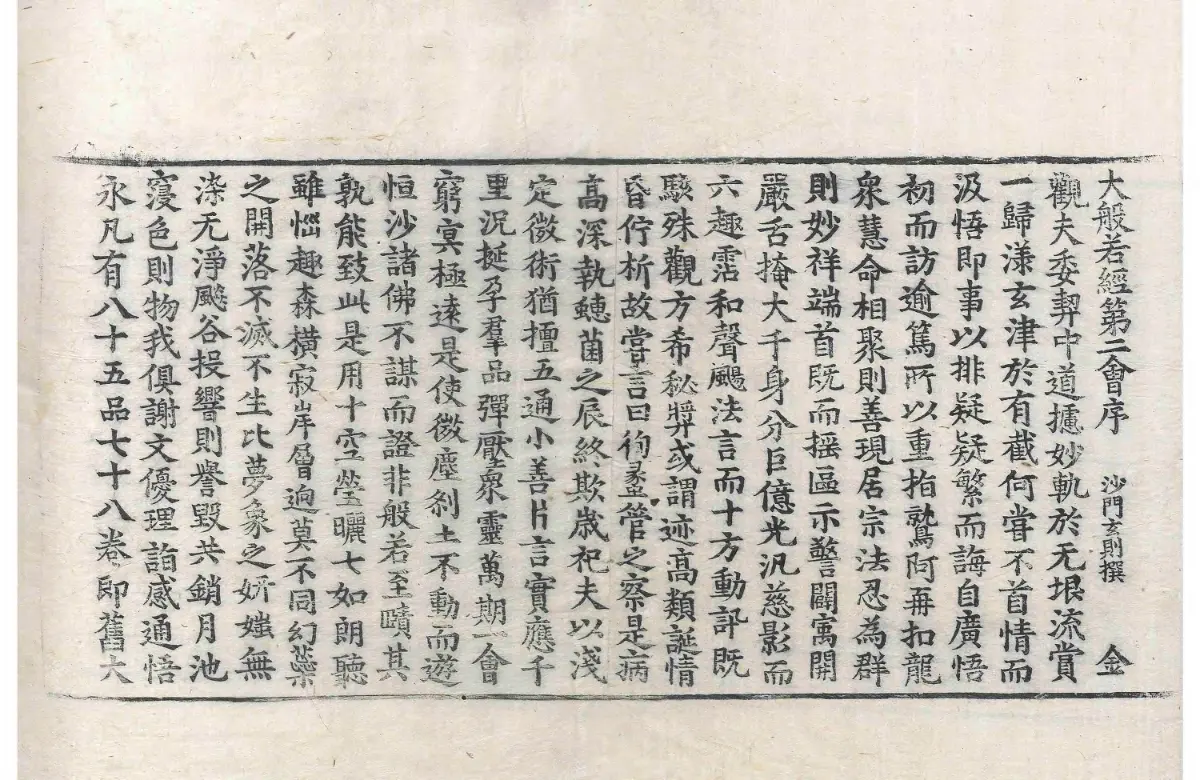 大般若經第二會序 沙門玄則撰 金
觀夫委㓞中道攄妙軌於无垠流賞
一歸漾玄津於有截何甞不首情而
汲悟即事以排疑疑繁而誨自廣悟
初而訪逾篤所以重指鷲阿再扣龍
泉慧命相聚則善現居宗法忍為群
則妙祥端首既而揺區示警闢寓開
嚴舌掩大千身分巨億光汎慈影而
六趣霑和聲颺法言而十方動訃既
駭殊觀方希秘弊或謂迹高類誕情
昏佇析故甞言曰徇蠡管之察是病
高深執蟪菌之辰終欺歲祀夫以淺
定微術猶擅五通小善片言實應千
里況挻孕羣品彈壓衆靈萬期一會
窮冥極遠是使微塵刹土不動而遊
恒沙諸佛不謀而證非般若至賾其
孰能致此是用十空瑩曬七如朗聽
雖惱趣森橫寂岸曾逈莫不同幻蘂
之開落不滅不生比夢象之妍媸無
染无淨飈谷投響則譽毀共銷月池
寑色則物我俱謝文優理詣感通悟
永凡有八十五品七十八卷即舊大